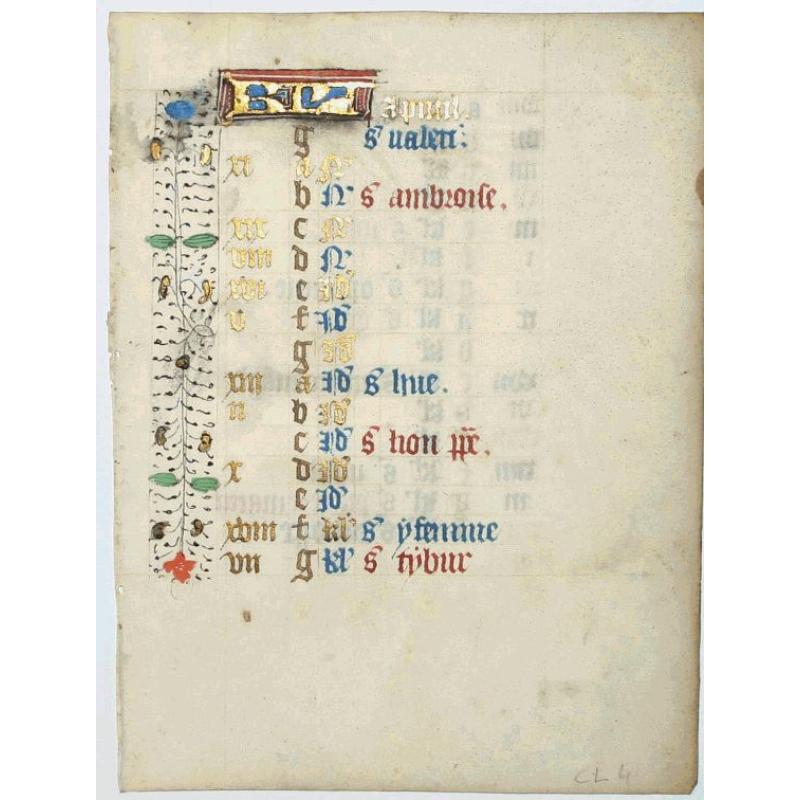 KL Apuril.
g s ualeri:
xi a N'
b N' s ambroise.
xix c N'
viii d N'
xvi e Id'
v f Id'
g Id'
xiii a Id' s hue.
ii b Id'
c Id' s lion pr.
x d Id'
e Id'
xviii f kl' s yfemme
vii g kl' s tybur
CL 4